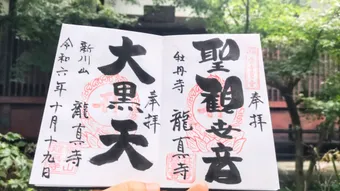 奉拝
聖観世音
牡丹寺 龍真寺
奉拝
大黒天
新川山 龍真寺
令和六年十月十九日